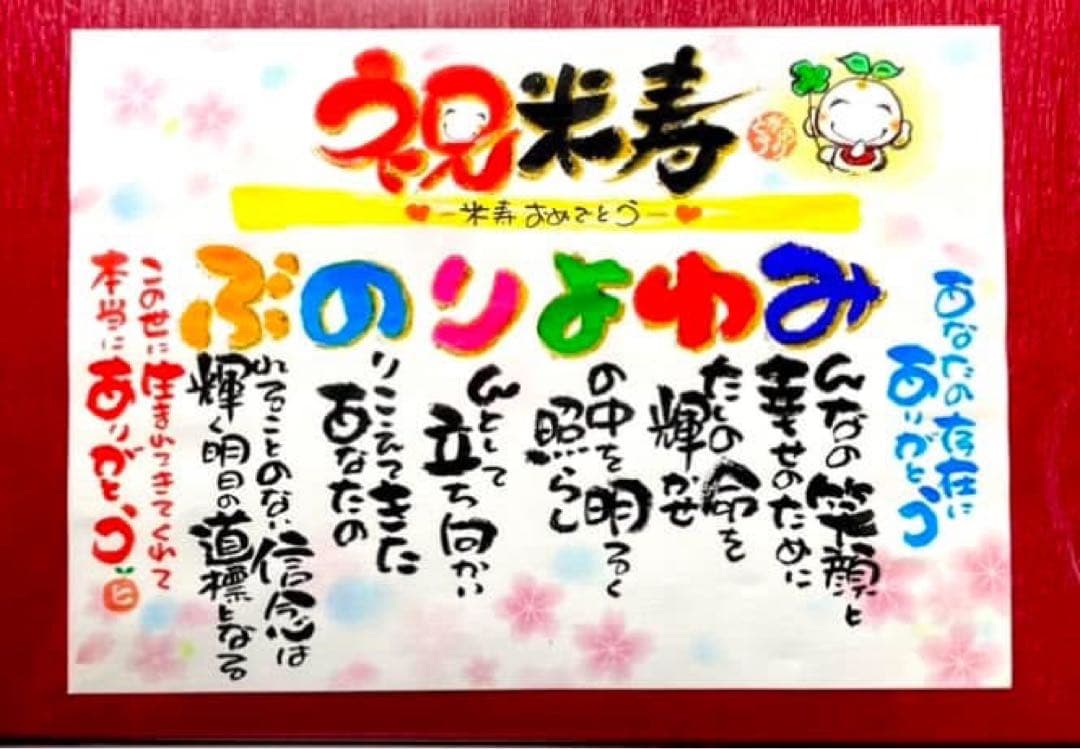 祝米寿
米寿おめでとう
あなたの存在に
ありがとう
みんなの笑顔と
幸せのために
わたしの命を
輝かせ
よの中を明るく
照らし
りんとして
立ち向かい
のりこえてきた
あなたの
ぶれることのない信念は
輝く明日の道標となる
この世に生まれてきてくれて
本当にありがとう